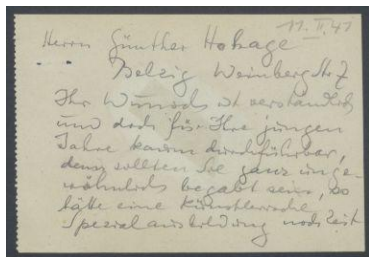 11. II. 41
Herrn Günther Hokage
Belzig Weinberg Str 7
Ihr Wunsch ist verständlich
und doch für Ihre jungen
Jahre kaum durchführbar,
denn sollten Sie ganz unge-
wöhnlich begabt sein, so
hätte eine Künstlerische
Spezialausbildung noch Zeit